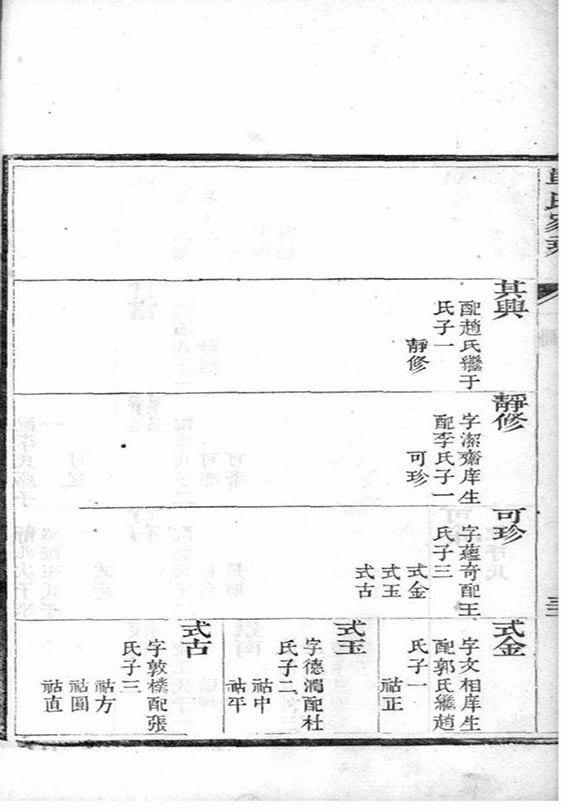 其興
配趙氏繼于
氏子一
靜修
靜修
字潔齋庠生
配李氏子一
可珍
可珍
字蘊奇配王
氏子三
式金
式玉
式古
式金
字文相庠生
配郭氏繼趙
氏子一
祜正
式玉
字德潤配杜
氏子二
祜中
祜平
式古
字敦樸配張
氏子三
祜方
祜圓
祜直